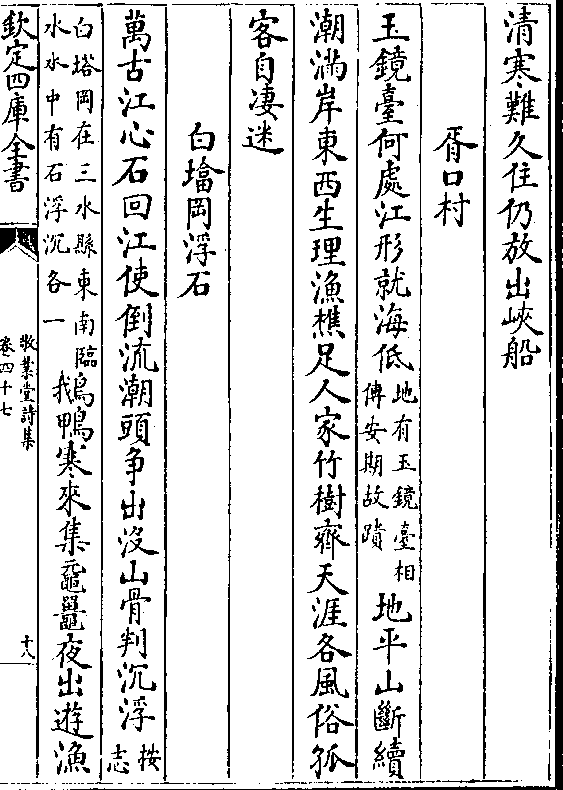 清寒難久住仍放出峽船
胥口村
玉鏡臺何處江形就海低
地有玉鏡臺相
傳安期故蹟
地平山斷續
潮滿岸東西生理漁樵足人家竹樹齊天涯各風俗孤
客自凄迷
白㙮岡浮石
萬古江心石回江使倒流潮頭争出没山骨判沉浮
按
志
白塔岡在三水縣東南臨
水水中有石浮沉各一
鵝鴨寒來集黿鼉夜出遊漁
欽定四庫全書
敬業堂詩集
卷四十七
十八